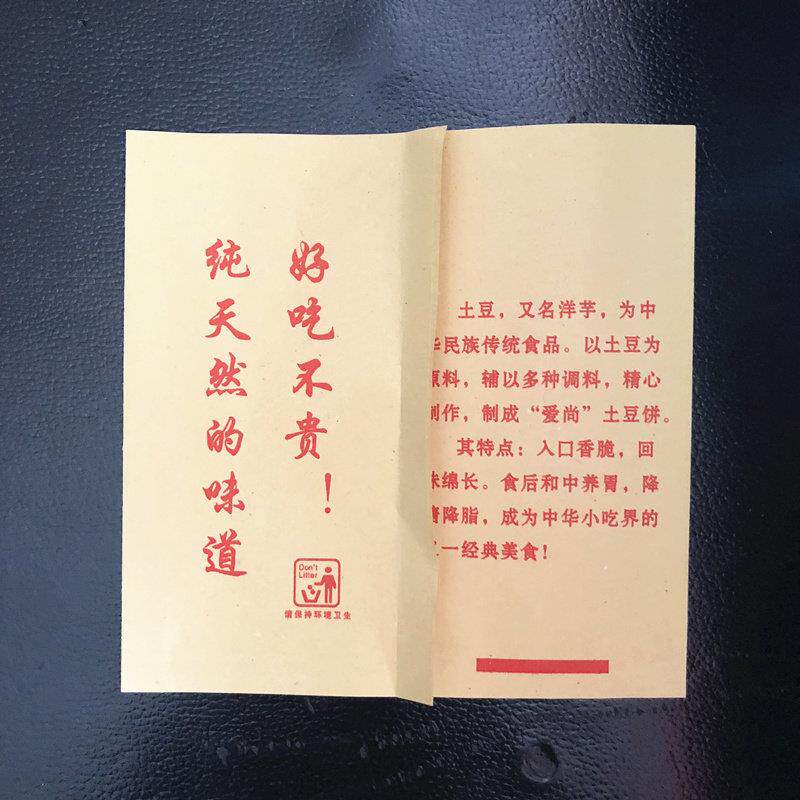 好吃不贵！
纯天然的味道
Don't
Litter
请保持环境卫生
土豆，又名洋芋，为中
华民族传统食品。以土豆为
原料，辅以多种调料，精心
制作，制成“爱尚”土豆饼。
其特点：入口香脆，回
味绵长。食后和中养胃，降
糖降脂，成为中华小吃界的
一经典美食！